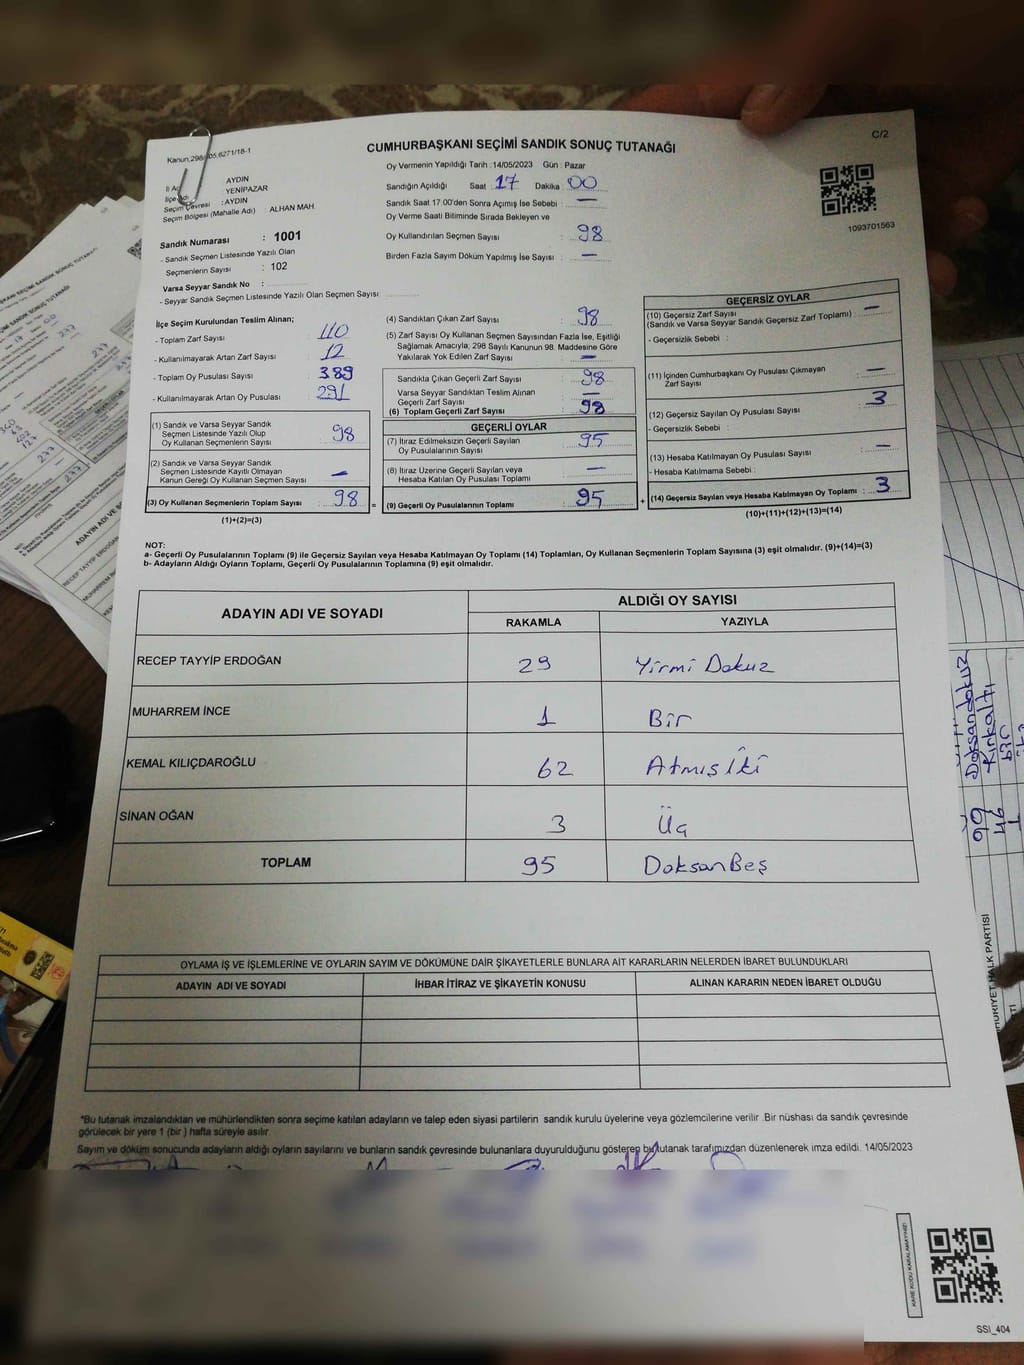 C/2
Kanun,298/105,6271/18-1
CUMHURBAŞKANI SEÇİMİ SANDIK SONUÇ TUTANAĞI
Oy Vermenin Yapıldığı Tarih :14/05/2023 Gün : Pazar
Sandığın Açıldığı Saat 17 Dakika : 00
Sandık Saat 17:00'den Sonra Açımış İse Sebebi : —
Oy Verme Saati Bitiminde Sırada Bekleyen ve
Oy Kullandırılan Seçmen Sayısı : 98
Birden Fazla Sayım Döküm Yapılmış İse Sayısı : —
1093701563
AYDIN
İlçe Adı YENİPAZAR
Seçim Çevresi : AYDIN
Seçim Bölgesi (Mahalle Adı) : ALHAN MAH.
Sandık Numarası : 1001
- Sandık Seçmen Listesinde Yazılı Olan
Seçmenlerin Sayısı : 102
Varsa Seyyar Sandık No :
- Seyyar Sandık Seçmen Listesinde Yazılı Olan Seçmen Sayısı:
İlçe Seçim Kurulundan Teslim Alınan;
- Toplam Zarf Sayısı : 110
- Kullanılmayarak Artan Zarf Sayısı : 12
- Toplam Oy Pusulası Sayısı : 389
- Kullanılmayarak Artan Oy Pusulası : 291
(1) Sandık ve Varsa Seyyar Sandık
Seçmen Listesinde Yazılı Olup
Oy Kullanan Seçmenlerin Sayısı : 98
(2) Sandık ve Varsa Seyyar Sandık
Seçmen Listesinde Kayıtlı Olmayan
Kanun Gereği Oy Kullanan Seçmen Sayısı : —
(3) Oy Kullanan Seçmenlerin Toplam Sayısı : 98 =
(1)+(2)=(3)
(4) Sandıktan Çıkan Zarf Sayısı : 98
(5) Zarf Sayısı Oy Kullanan Seçmen Sayısından Fazla İse, Eşitliği
Sağlamak Amacıyla, 298 Sayılı Kanunun 98. Maddesine Göre
Yakılarak Yok Edilen Zarf Sayısı : —
Sandıkta Çıkan Geçerli Zarf Sayısı : 98
Varsa Seyyar Sandıktan Teslim Alınan
Geçerli Zarf Sayısı : —
(6) Toplam Geçerli Zarf Sayısı : 98
GEÇERLİ OYLAR
(7) İtiraz Edilmeksizin Geçerli Sayılan
Oy Pusulalarının Sayısı : 95
(8) İtiraz Üzerine Geçerli Sayılan veya
Hesaba Katılan Oy Pusulası Toplamı : —
(9) Geçerli Oy Pusulalarının Toplamı : 95 +
GEÇERSİZ OYLAR
(10) Geçersiz Zarf Sayısı
(Sandık ve Varsa Seyyar Sandık Geçersiz Zarf Toplamı) : —
- Geçersizlik Sebebi :
(11) İçinden Cumhurbaşkanı Oy Pusulası Çıkmayan
Zarf Sayısı : —
(12) Geçersiz Sayılan Oy Pusulası Sayısı : 3
- Geçersizlik Sebebi :
(13) Hesaba Katılmayan Oy Pusulası Sayısı : —
- Hesaba Katılmama Sebebi :
(14) Geçersiz Sayılan veya Hesaba Katılmayan Oy Toplamı : 3
(10)+(11)+(12)+(13)=(14)
NOT:
a- Geçerli Oy Pusulalarının Toplamı (9) ile Geçersiz Sayılan veya Hesaba Katılmayan Oy Toplamı (14) Toplamları, Oy Kullanan Seçmenlerin Toplam Sayısına (3) eşit olmalıdır. (9)+(14)=(3)
b- Adayların Aldığı Oyların Toplamı, Geçerli Oy Pusulalarının Toplamına (9) eşit olmalıdır.
ADAYIN ADI VE SOYADI ALDIĞI OY SAYISI
RAKAMLA YAZIYLA
RECEP TAYYİP ERDOĞAN 29 Yirmi Dokuz
MUHARREM İNCE 1 Bir
KEMAL KILIÇDAROĞLU 62 Atmış İki
SİNAN OĞAN 3 Üç
TOPLAM 95 Doksan Beş
OYLAMA İŞ VE İŞLEMLERİNE VE OYLARIN SAYIM VE DÖKÜMÜNE DAİR ŞİKAYETLERLE BUNLARA AİT KARARLARIN NELERDEN İBARET BULUNDUKLARI
ADAYIN ADI VE SOYADI İHBAR İTİRAZ VE ŞİKAYETİN KONUSU ALINAN KARARIN NEDEN İBARET OLDUĞU
*Bu tutanak imzalandıktan ve mühürlendikten sonra seçime katılan adayların ve talep eden siyasi partilerin sandık kurulu üyelerine veya gözlemcilerine verilir .Bir nüshası da sandık çevresinde
görülecek bir yere 1 (bir ) hafta süreyle asılır.
Sayım ve döküm sonucunda adayların aldığı oyların sayılarını ve bunların sandık çevresinde bulunanlara duyurulduğunu gösteren bu tutanak tarafımızdan düzenlenerek imza edildi. 14/05/2023
KARE KODU KARALAMAYINIZ!
SSİ_404
Doksandokuz
Kırkaltı
99
46
1
HALK PARTİSİ